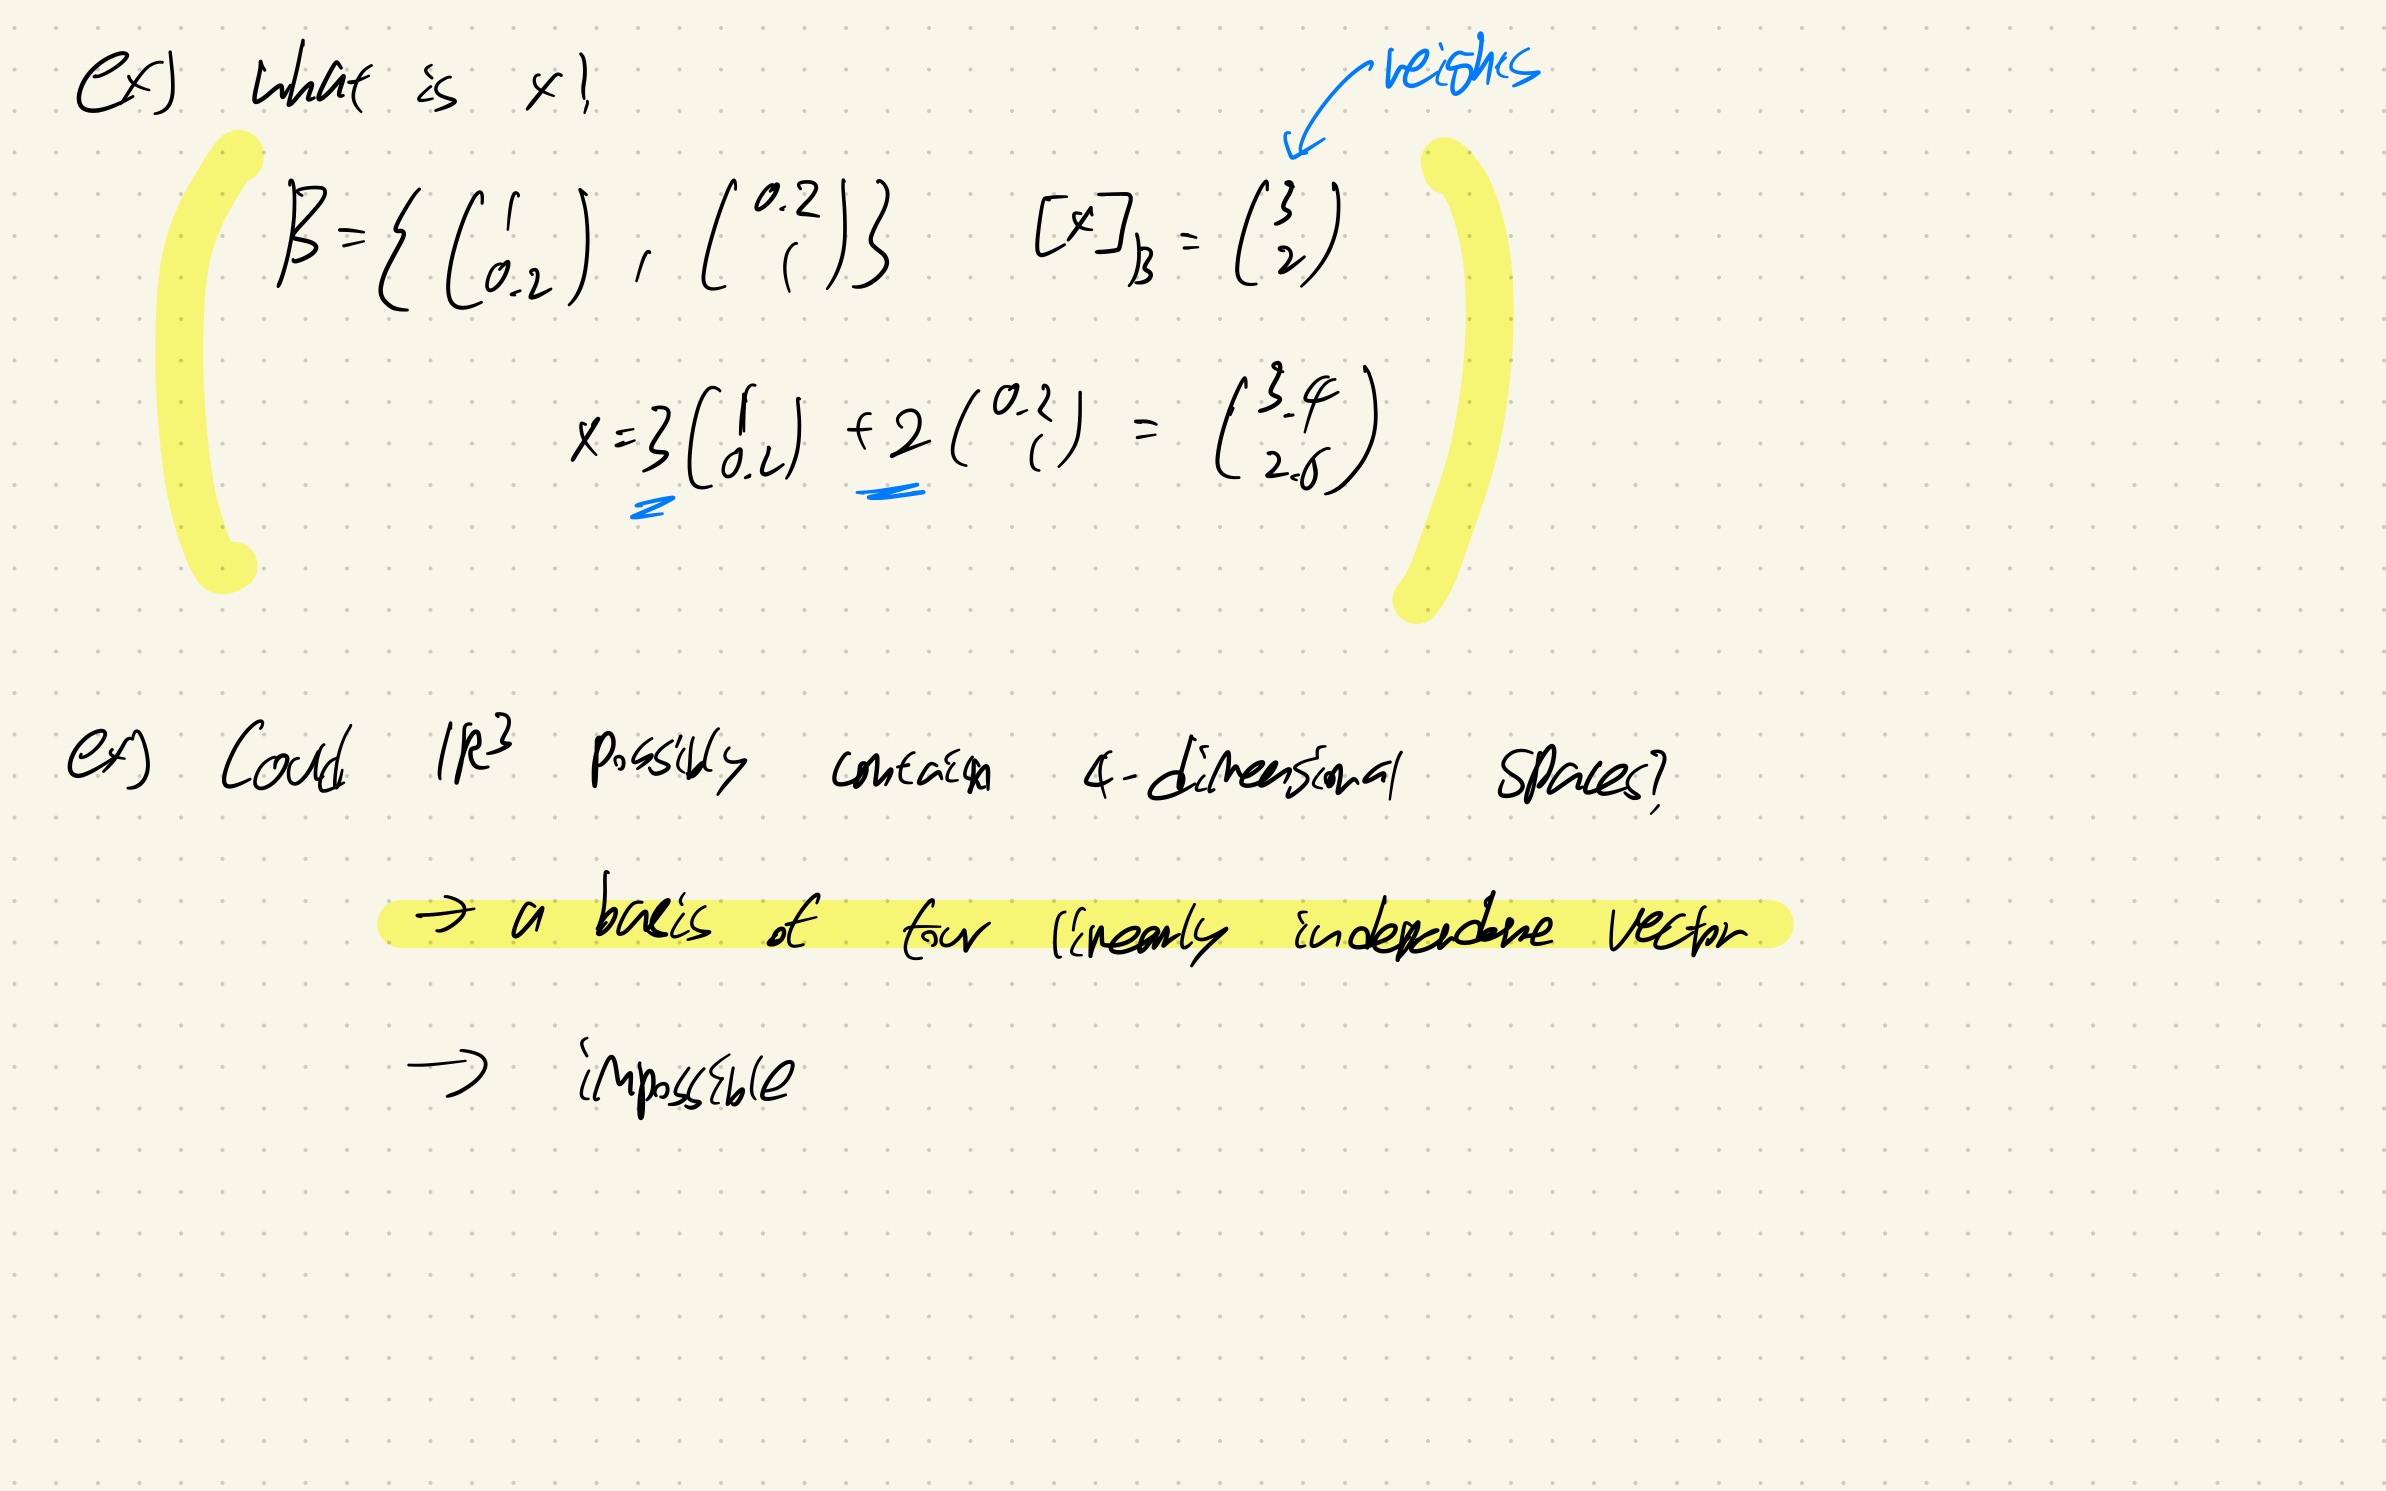 ex) what is x?
weights
B = { (1 0.2) , (0.2 1) } [x]B = (3 2)
x = 3 (1 0.2) + 2 (0.2 1) = (3.4 2.6)
ex) Could ℝ³ possibly contain 4-dimensional spaces?
→ a basis of four linearly independent vector
→ impossible